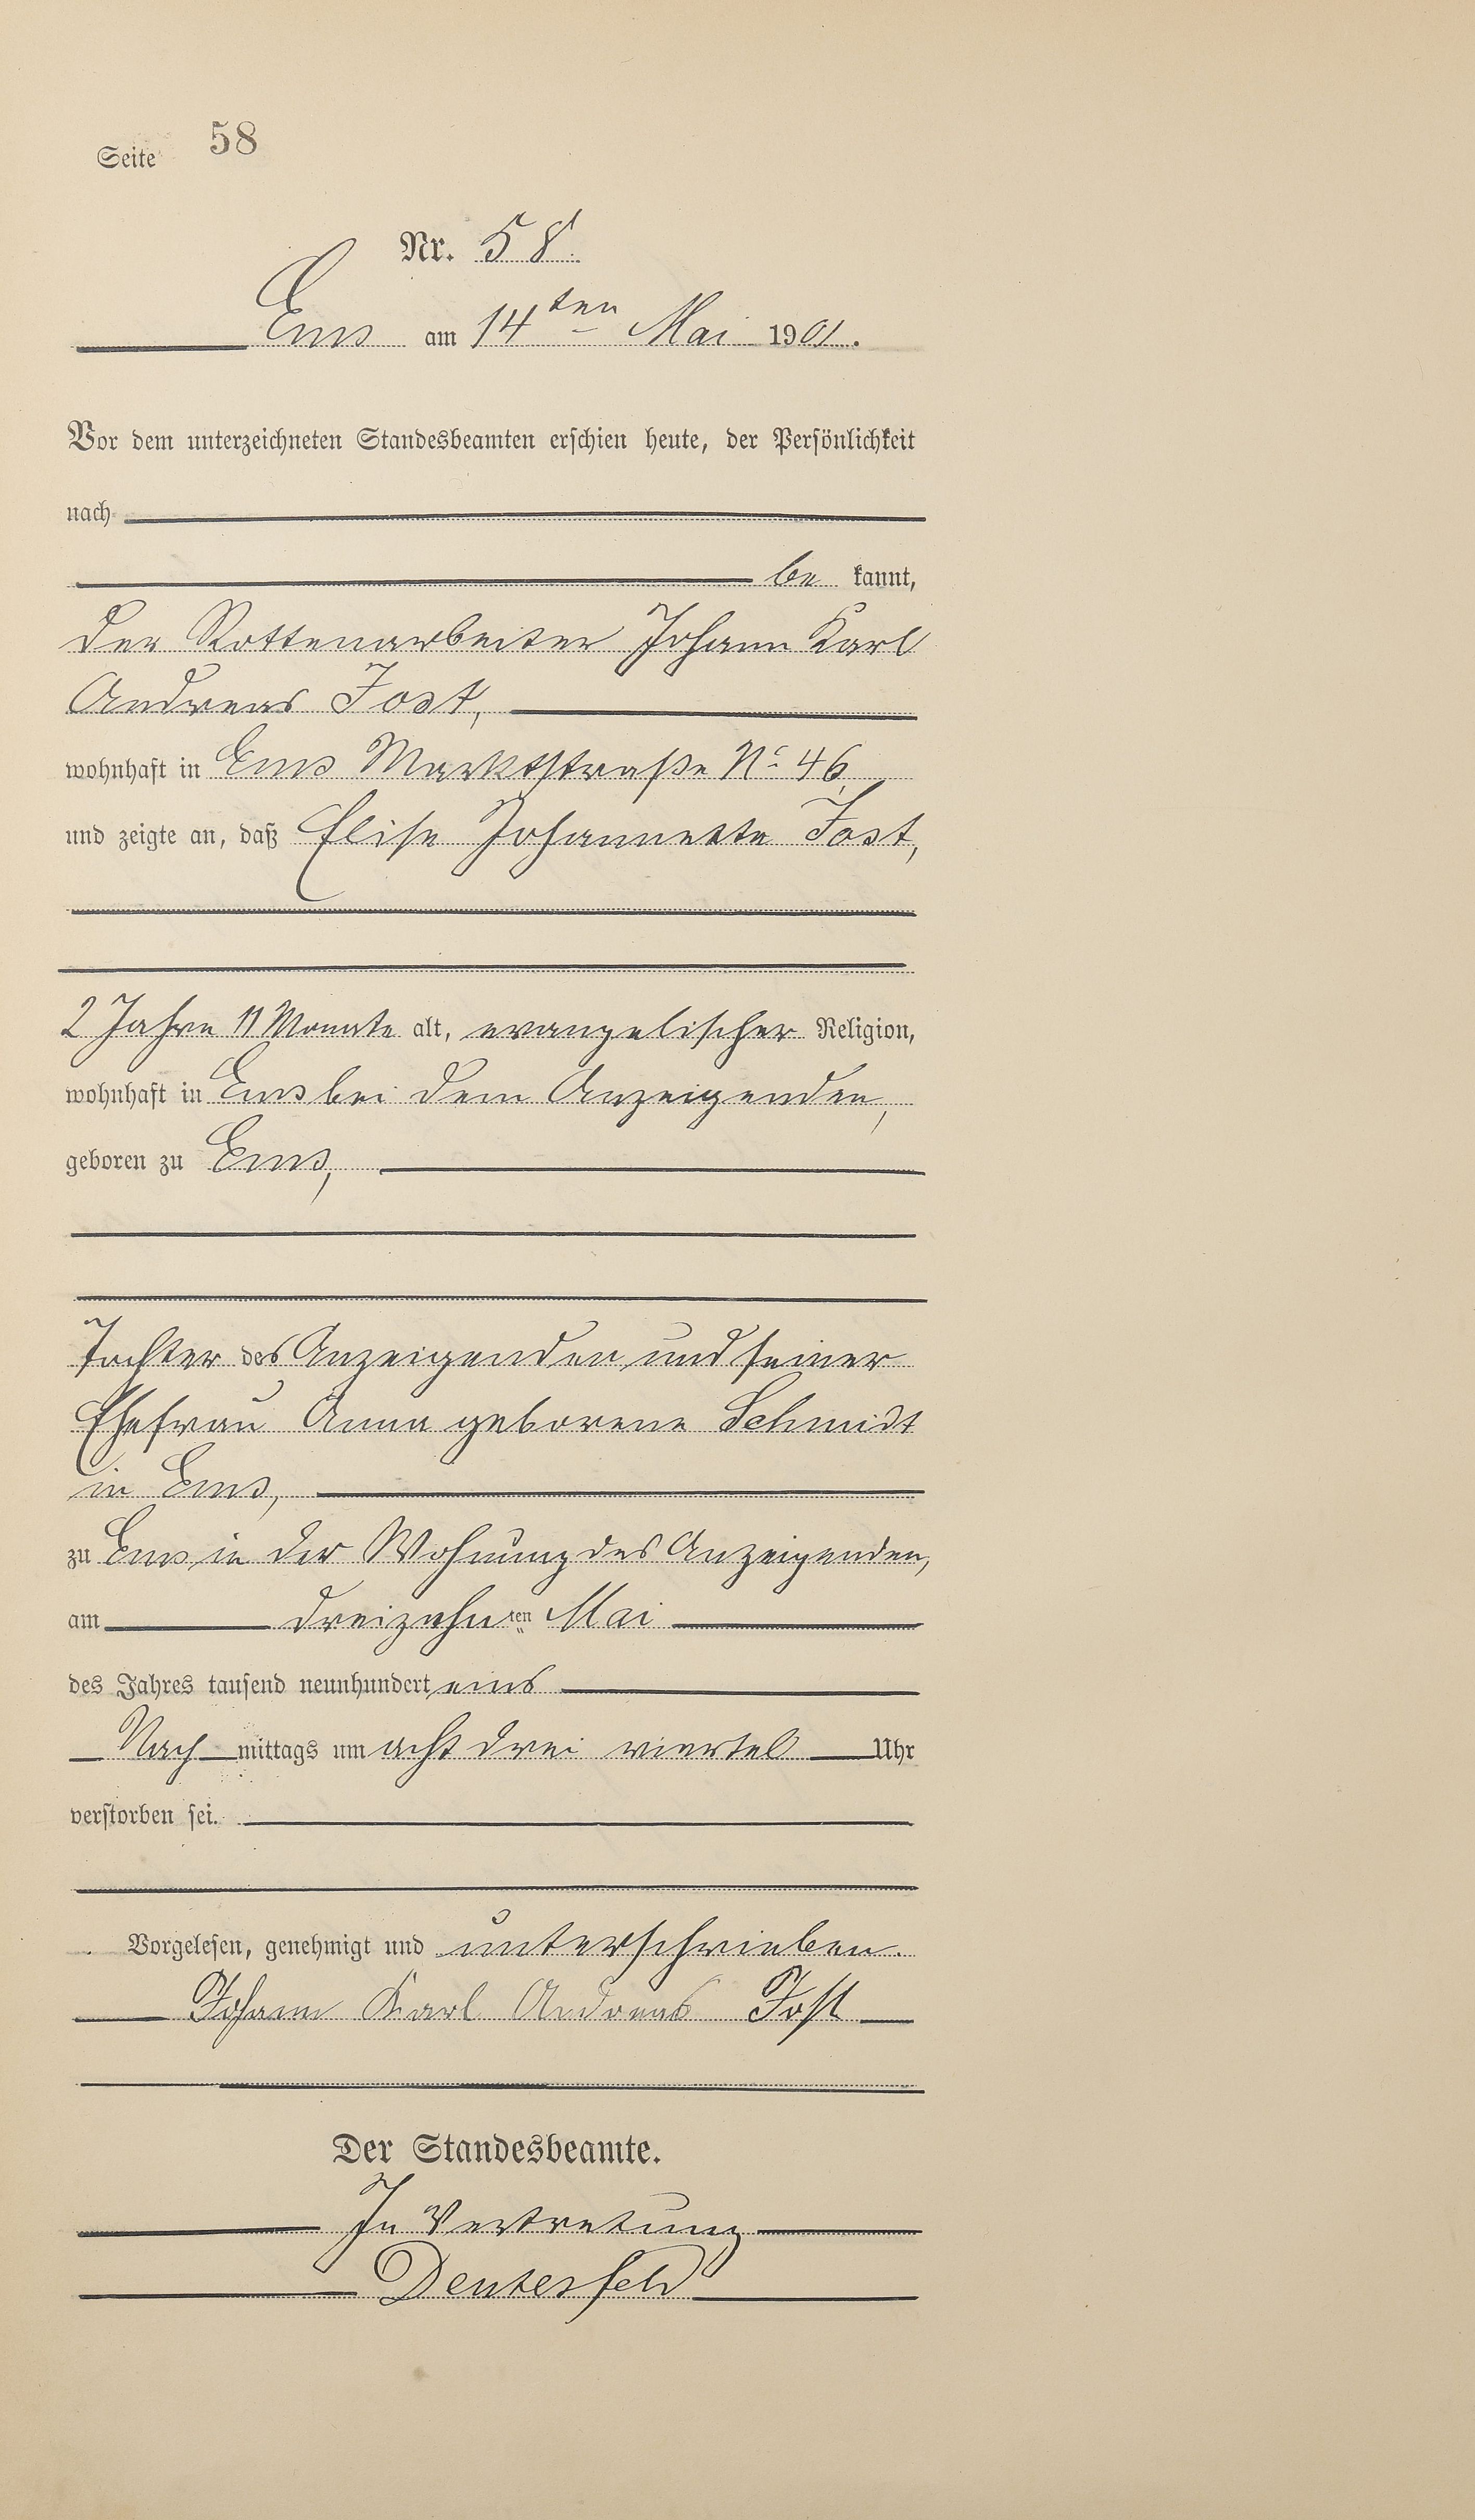 Seite 58
Nr. 58.
Ems am 14ten Mai 1901.
Vor dem unterzeichneten Standesbeamten erschien heute, der Persönlichkeit
nach
be kannt,
der Rottenarbeiter Johann Karl
Andreas Jost,
wohnhaft in Ems Marktstraße No 46,
und zeigte an, daß Elise Johannette Jost,
2 Jahre 11 Monate alt, evangelischer Religion,
wohnhaft in Ems bei dem Anzeigenden,
geboren zu Ems,
Tochter des Anzeigenden und seiner
Ehefrau Anna geborene Schmidt
in Ems,
zu Ems in der Wohnung des Anzeigenden,
am dreizehnten Mai
des Jahres tausend neunhundert eins
Nach mittags um acht drei viertel Uhr
verstorben sei.
Vorgelesen, genehmigt und unterschrieben.
Johann Karl Andreas Jost
Der Standesbeamte.
In Vertretung
Deutesfeld